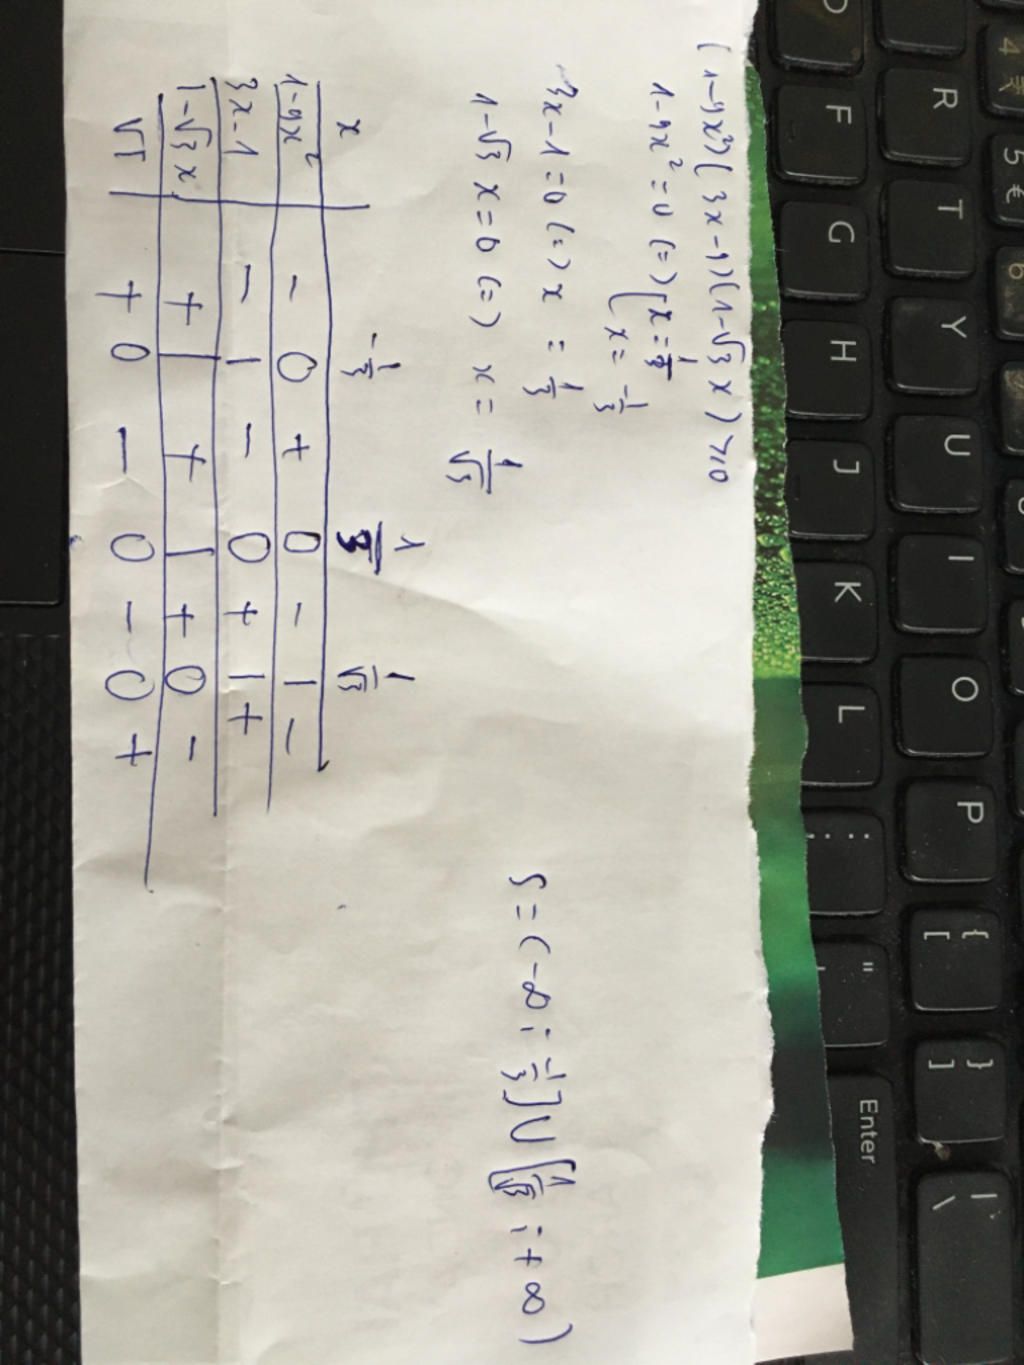 (1-9x²)(3x-1)(1-√3 x) ≥ 0
1-9x² = 0 (=) [x = 1/3
[x = -1/3
3x-1 = 0 (=) x = 1/3
1-√3 x = 0 (=) x = 1/√3
x -1/3 1/3 1/√3
1-9x² - 0 + 0 - | -
3x-1 - | - 0 + | +
1-√3 x + | + | + 0 -
VT + 0 - 0 - 0 +
S = (-∞ ; -1/3] U [1/√3 ; +∞)
4 ₹
5 €
6
R
T
Y
U
I
O
P
{ [
} ]
| \
D
F
G
H
J
K
L
: ;
"
Enter